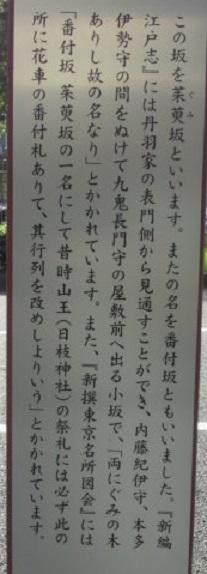 この坂を茱萸坂といいます。またの名を番付坂ともいいました。『新編
ぐみ
江戸志』には丹羽家の表門側から見通すことができ、内藤紀伊守、本多
伊勢守の間をぬけて九鬼長門守の屋敷前へ出る小坂で、「両にぐみの木
ありし故の名なり」とかかれています。また、『新撰東京名所図会』には
「番付坂 茱萸坂の一名にして昔時山王（日枝神社）の祭礼には必ず此の
所に花車の番付札ありて、其行列を改めしよりいう」とかかれています。